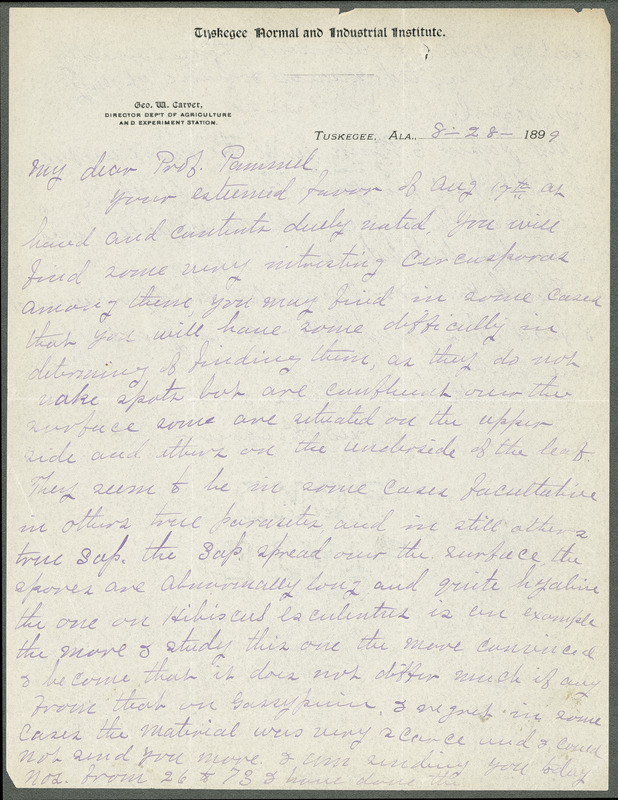 Tuskegee Normal and Industrial Institute.
Geo. W. Carver,
DIRECTOR DEP'T OF AGRICULTURE
AND EXPERIMENT STATION.
TUSKEGEE, ALA., 8-28-1899
My dear Prof. Pammel.
Your esteemed favor of Aug 17th at
hand and contents duely noted, you will
find some very intresting Cercusporas
among them, you may find in some cases
that you will have some difficully in
determing of finding them, as they do not
make spots but are confluent over the
surface some are situated on the upper
side and others on the underside of the leaf.
They seem to be in some cases facultative
in others true parasites and in still others
true Sap. the Sap. spread over the surface, the
spores are abnormally long and quite hyaline
the one on Hibiscus esculentus is an example
the more I study this one the more convinced
I become that it does not differ much if any
from that on Gossypium. I regret in some
cases the material was very scarce and I could
not send you more. I am sending you today
Nos. from 26 to 73 I have done the